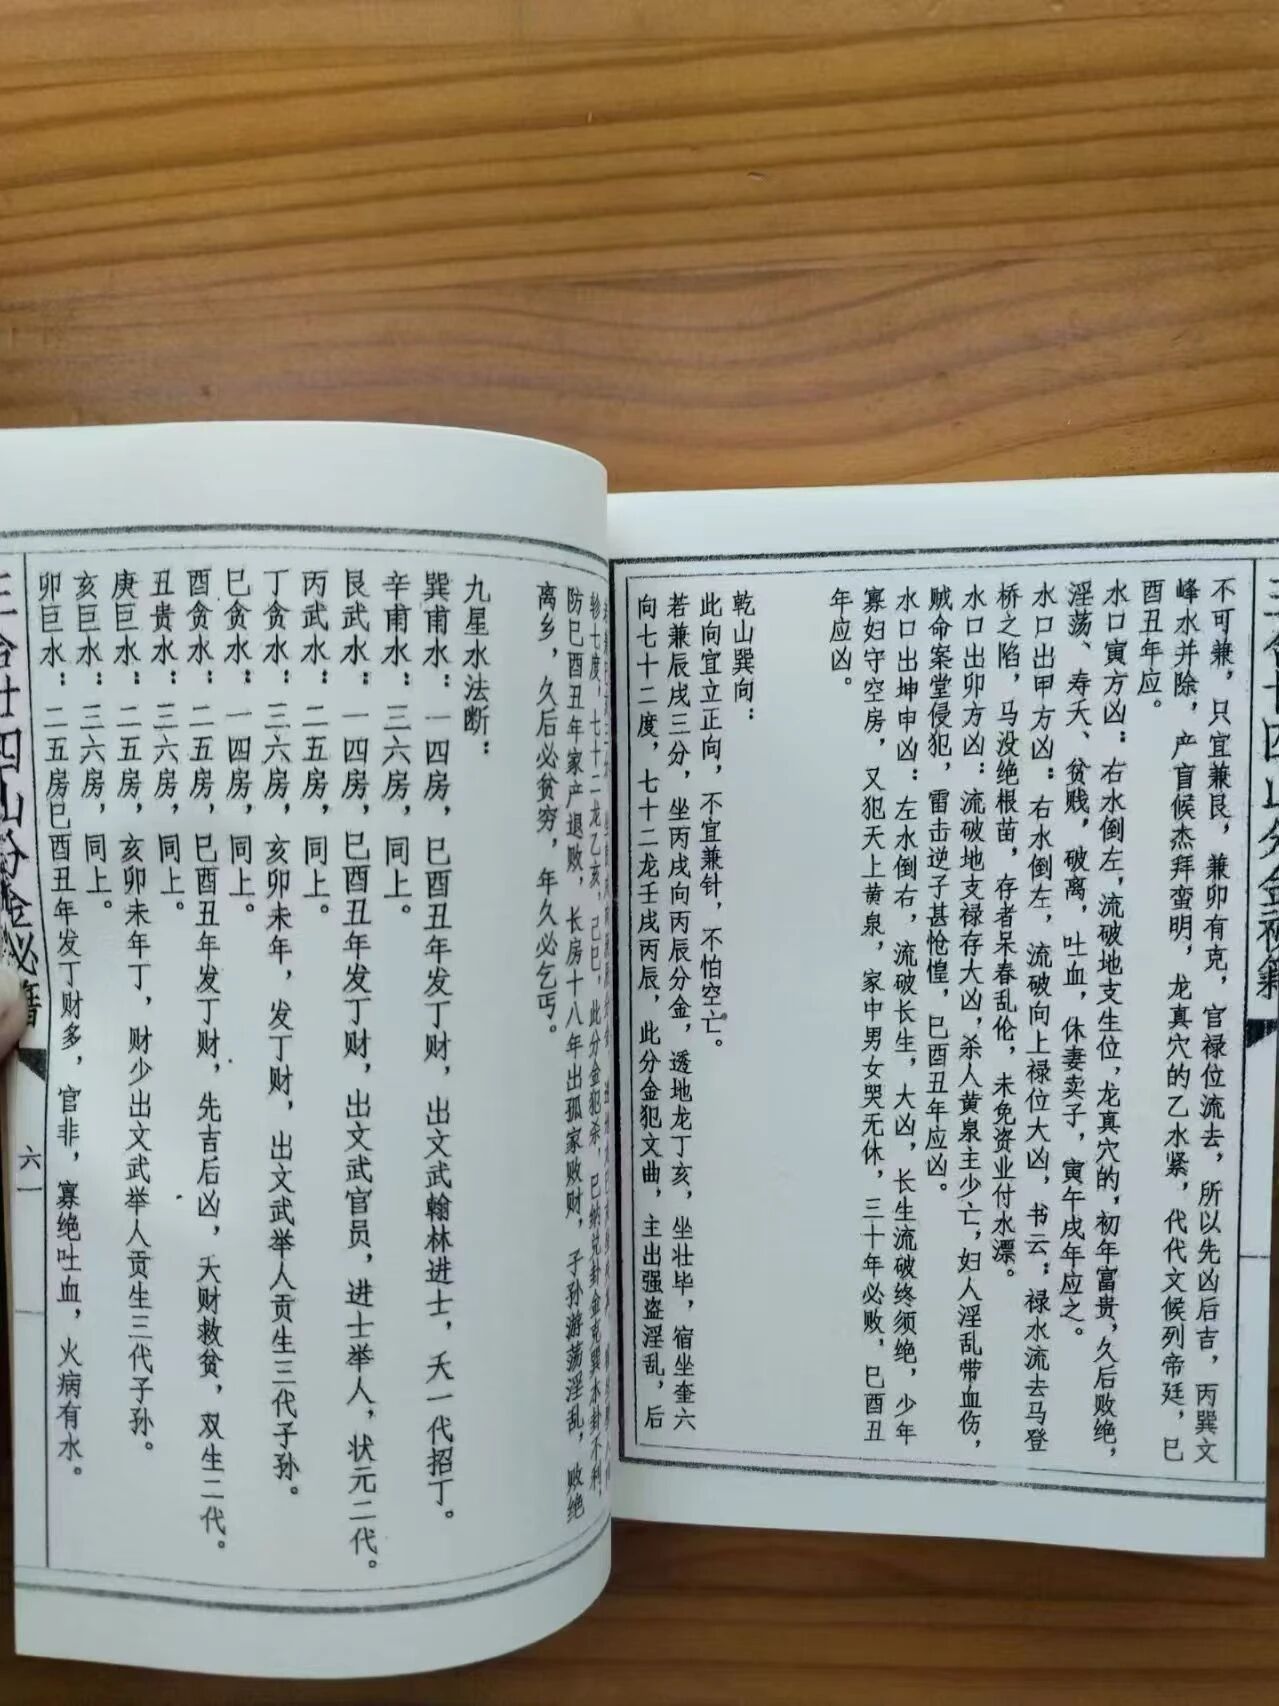 不可兼，只宜兼艮，兼卯有克，官禄位流去，所以先凶后吉，丙巽文
峰水并除，产盲候杰拜蛮明，龙真穴的乙水紧，代代文候列帝廷，巳
酉丑年应。
水口寅方凶：右水倒左，流破地支生位，龙真穴的，初年富贵，久后败绝，
淫荡、寿夭、贫贱，破离，吐血，休妻卖子，寅午戌年应之。
水口出甲方凶：右水倒左，流破向上禄位大凶，书云；禄水流去马登
桥之陷，马没绝根苗，存者呆春乱伦，未免资业付水漂。
水口出卯方凶：流破地支禄存大凶，杀人黄泉主少亡，妇人淫乱带血伤，
贼命案堂侵犯，雷击逆子甚怆惶，巳酉丑年应凶。
水口出坤申凶：左水倒右，流破长生，大凶，长生流破终须绝，少年
寡妇守空房，又犯天上黄泉，家中男女哭无休，三十年必败，巳酉丑
年应凶。
乾山巽向：
此向宜立正向，不宜兼针，不怕空亡。
若兼辰戌三分，坐丙戌向丙辰分金，透地龙丁亥，坐壮毕，宿坐奎六
向七十二度，七十二龙壬戌丙辰，此分金犯文曲，主出强盗淫乱，后
轸七度，七十二龙乙亥，己巳，此分金犯杀，巳纳兑卦金克巽木卦不利，
防巳酉丑年家产退败，长房十八年出孤家败财，子孙游荡淫乱，败绝
离乡，久后必贫穷，年久必乞丐。
九星水法断：
巽甫水：一四房，巳酉丑年发丁财，出文武翰林进士，夭一代招丁。
辛甫水：三六房，同上。
艮武水：一四房，巳酉丑年发丁财，出文武官员，进士举人，状元二代。
丙武水：二五房，同上。
丁贪水：三六房，亥卯未年，发丁财，出文武举人贡生三代子孙。
巳贪水：一四房，同上。
酉贪水：二五房，巳酉丑年发丁财，先吉后凶，夭财救贫，双生二代。
丑贵水：三六房，同上。
庚巨水：二五房，亥卯未年丁，财少出文武举人贡生三代子孙。
亥巨水：三六房，同上。
卯巨水：二五房巳酉丑年发丁财多，官非，寡绝吐血，火病有水。
六一